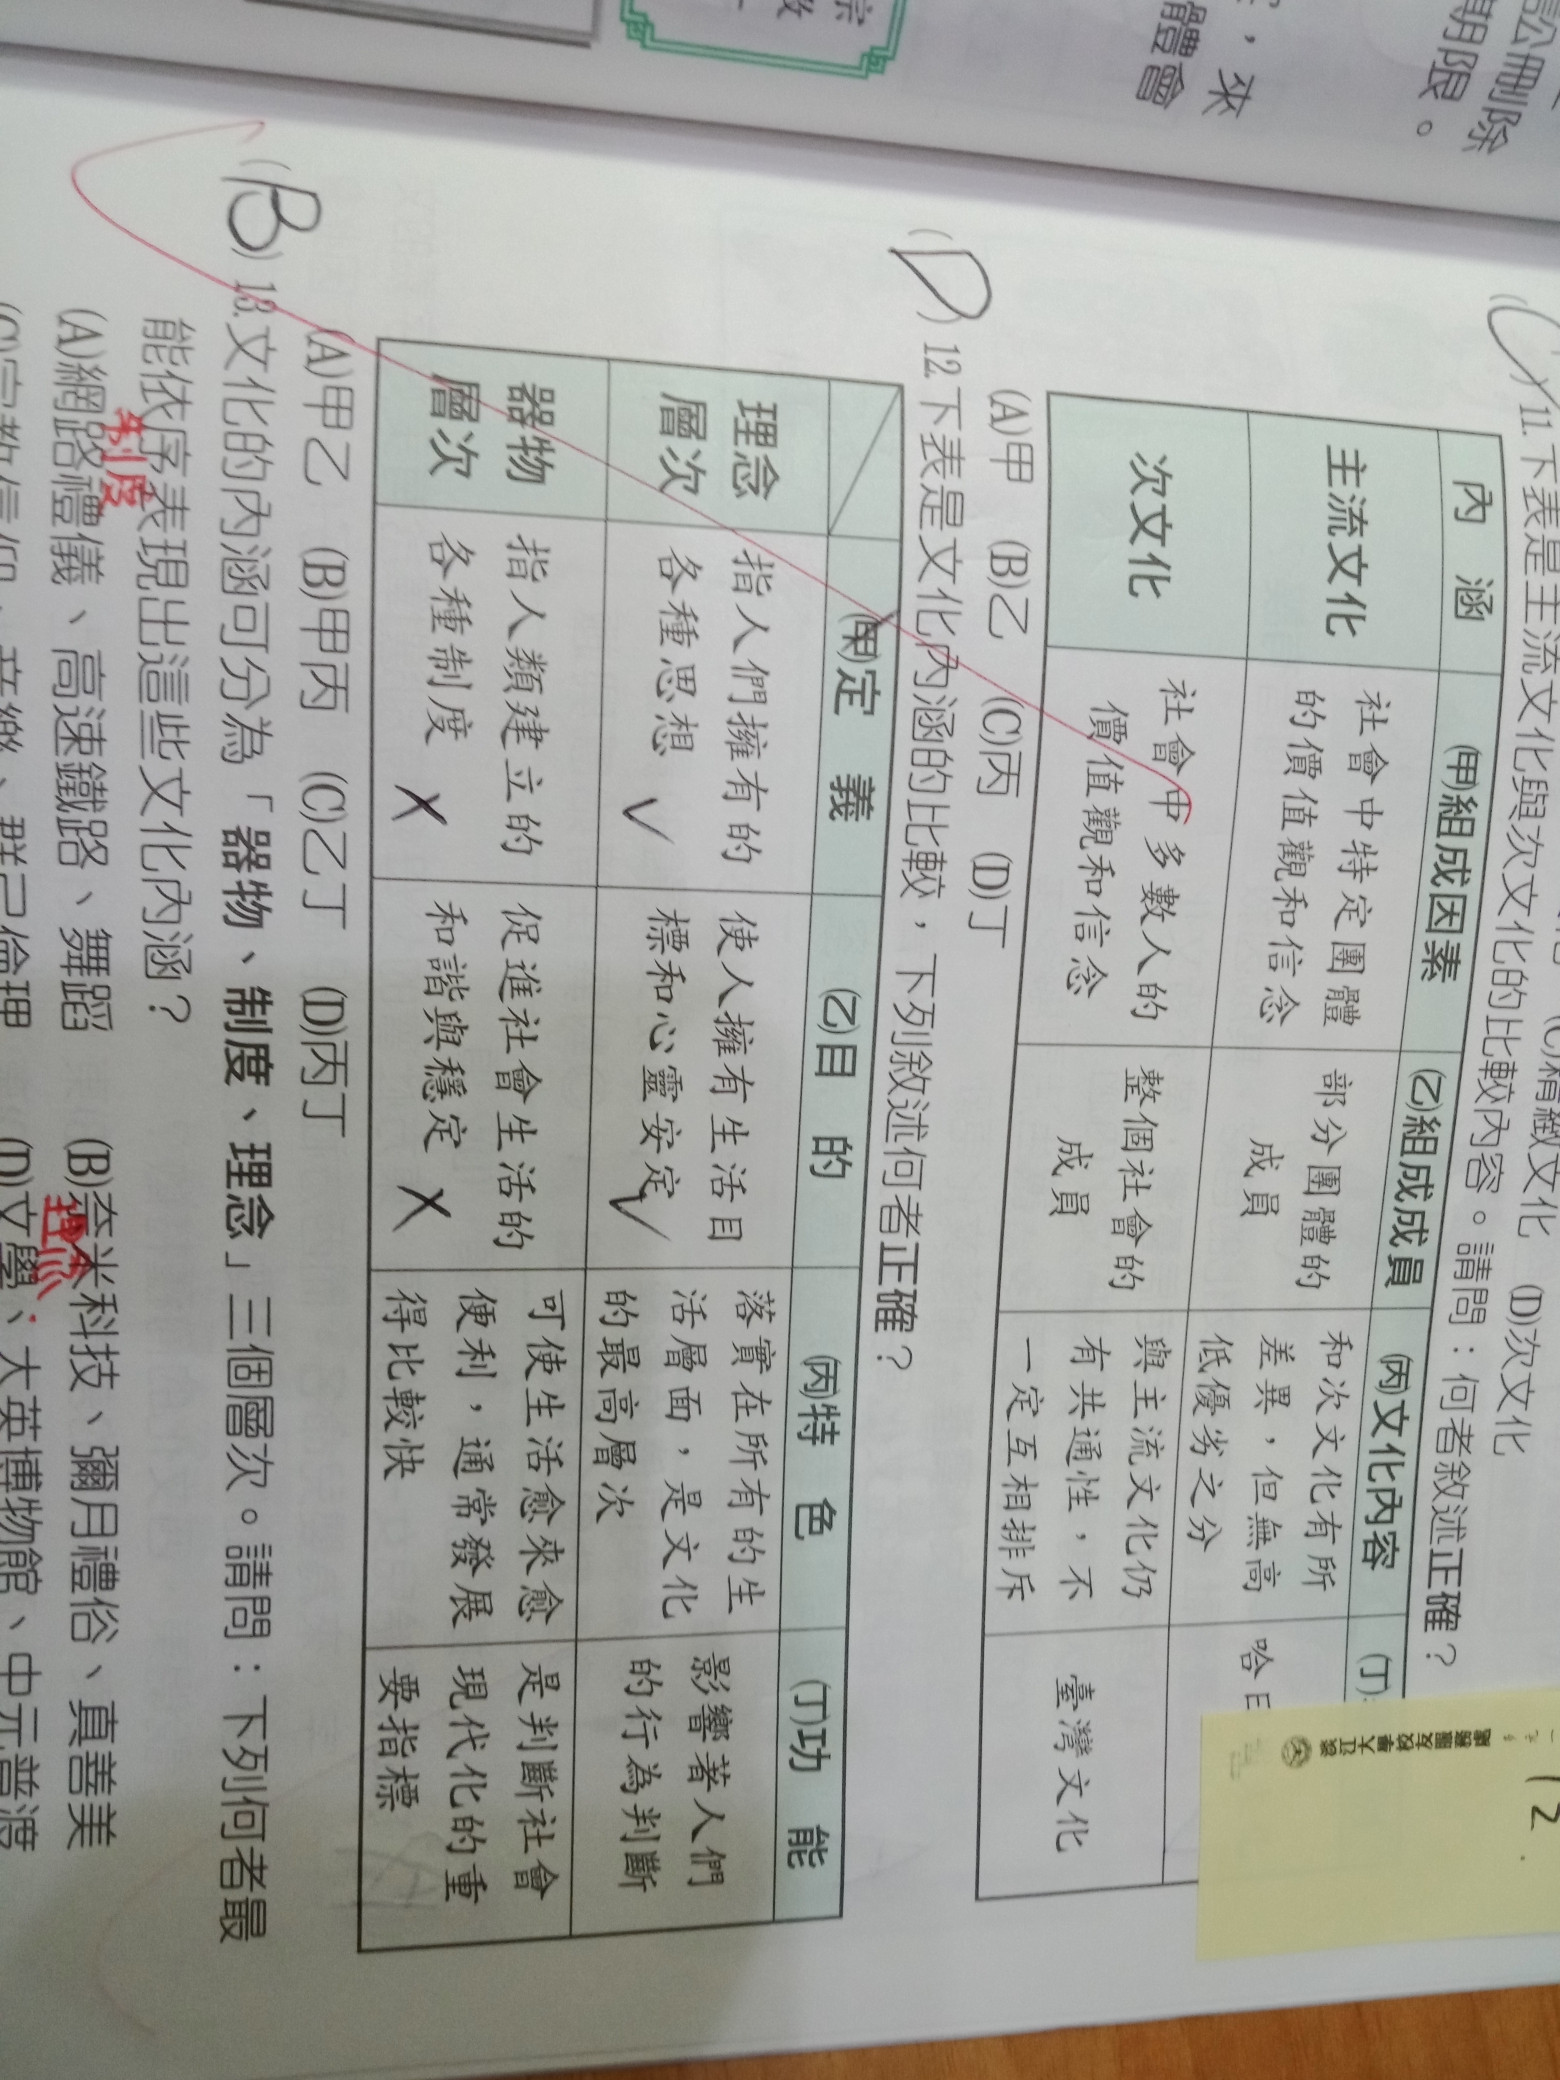 訟刪除
期限。
，來
體會
宗
教
(C)精緻文化 (D)次文化
(C) 11. 下表是主流文化與次文化的比較內容。請問：何者敘述正確？
內涵 (甲)組成因素 (乙)組成成員 (丙)文化內容 (丁)
主流文化 社會中特定團體 部分團體的 和次文化有所 哈日
的價值觀和信念 成員 差異，但無高
低優劣之分
次文化 社會中多數人的 整個社會的 與主流文化仍 臺灣文化
價值觀和信念 成員 有共通性，不
一定互相排斥
(A)甲 (B)乙 (C)丙 (D)丁
12.
淡江大學校友服務處
(D) 12. 下表是文化內涵的比較，下列敘述何者正確？
(甲)定義 (乙)目的 (丙)特色 (丁)功能
理念 指人們擁有的 使人擁有生活目 落實在所有的生 影響著人們
層次 各種思想 ✓ 標和心靈安定 ✓ 活層面，是文化 的行為判斷
的最高層次
器物 指人類建立的 促進社會生活的 可使生活愈來愈 是判斷社會
層次 各種制度 X 和諧與穩定 X 便利，通常發展 現代化的重
得比較快 要指標
(A)甲乙 (B)甲丙 (C)乙丁 (D)丙丁
(B) 13. 文化的內涵可分為「器物、制度、理念」三個層次。請問：下列何者最
能依序表現出這些文化內涵？
制度
(A)網路禮儀、高速鐵路、舞蹈 (B)奈米科技、彌月禮俗、真善美
理念
(C)宗教信仰、音樂、群己倫理 (D)文學、大英博物館、中元普渡